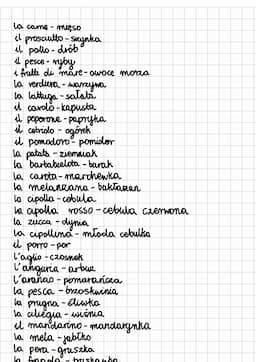 la carne - mięso
il prosciutto - szynka
il pollo - drób
il pesce - ryby
i frutti di mare - owoce morza
la verdura - warzywa
la lattuga - sałata
il cavolo - kapusta
il peperone - papryka
il cetriolo - ogórek
il pomodoro - pomidor
la patata - ziemniak
la barbabietola - burak
la carota - marchewka
la melanzana - bakłażan
la cipolla - cebula
la cipolla rossa - cebula czerwona
la zucca - dynia
la cipollina - młoda cebulka
il porro - por
l'aglio - czosnek
l'anguria - arbuz
l'arancio - pomarańcza
la pesca - brzoskwinia
la prugna - śliwka
la ciliegia - wiśnia
il mandarino - mandarynka
la mela - jabłko
la pera - gruszka
la fragola - truskawka